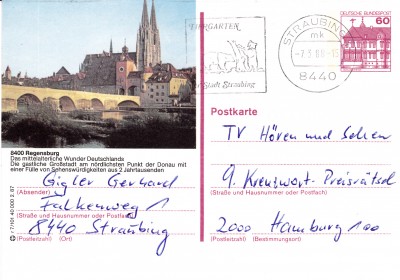 TIERGARTEN
der Stadt Straubing
STRAUBING
mk
8440
DEUTSCHE BUNDESPOST
60
8400 Regensburg
Das mittelalterliche Wunder Deutschlands
Die gastliche Großstadt am nördlichsten Punkt der Donau mit
einer Fülle von Sehenswürdigkeiten aus 2 Jahrtausenden
Gigler Gerhard
(Absender)
Falkenweg 1
(Straße und Hausnummer oder Postfach)
8440 Straubing
(Postleitzahl) (Ort)
Postkarte
TV Hören und Sehen
9. Kreuzwort-Preisrätsel
(Straße und Hausnummer oder Postfach)
2000 Hamburg 100
(Postleitzahl) (Bestimmungsort)